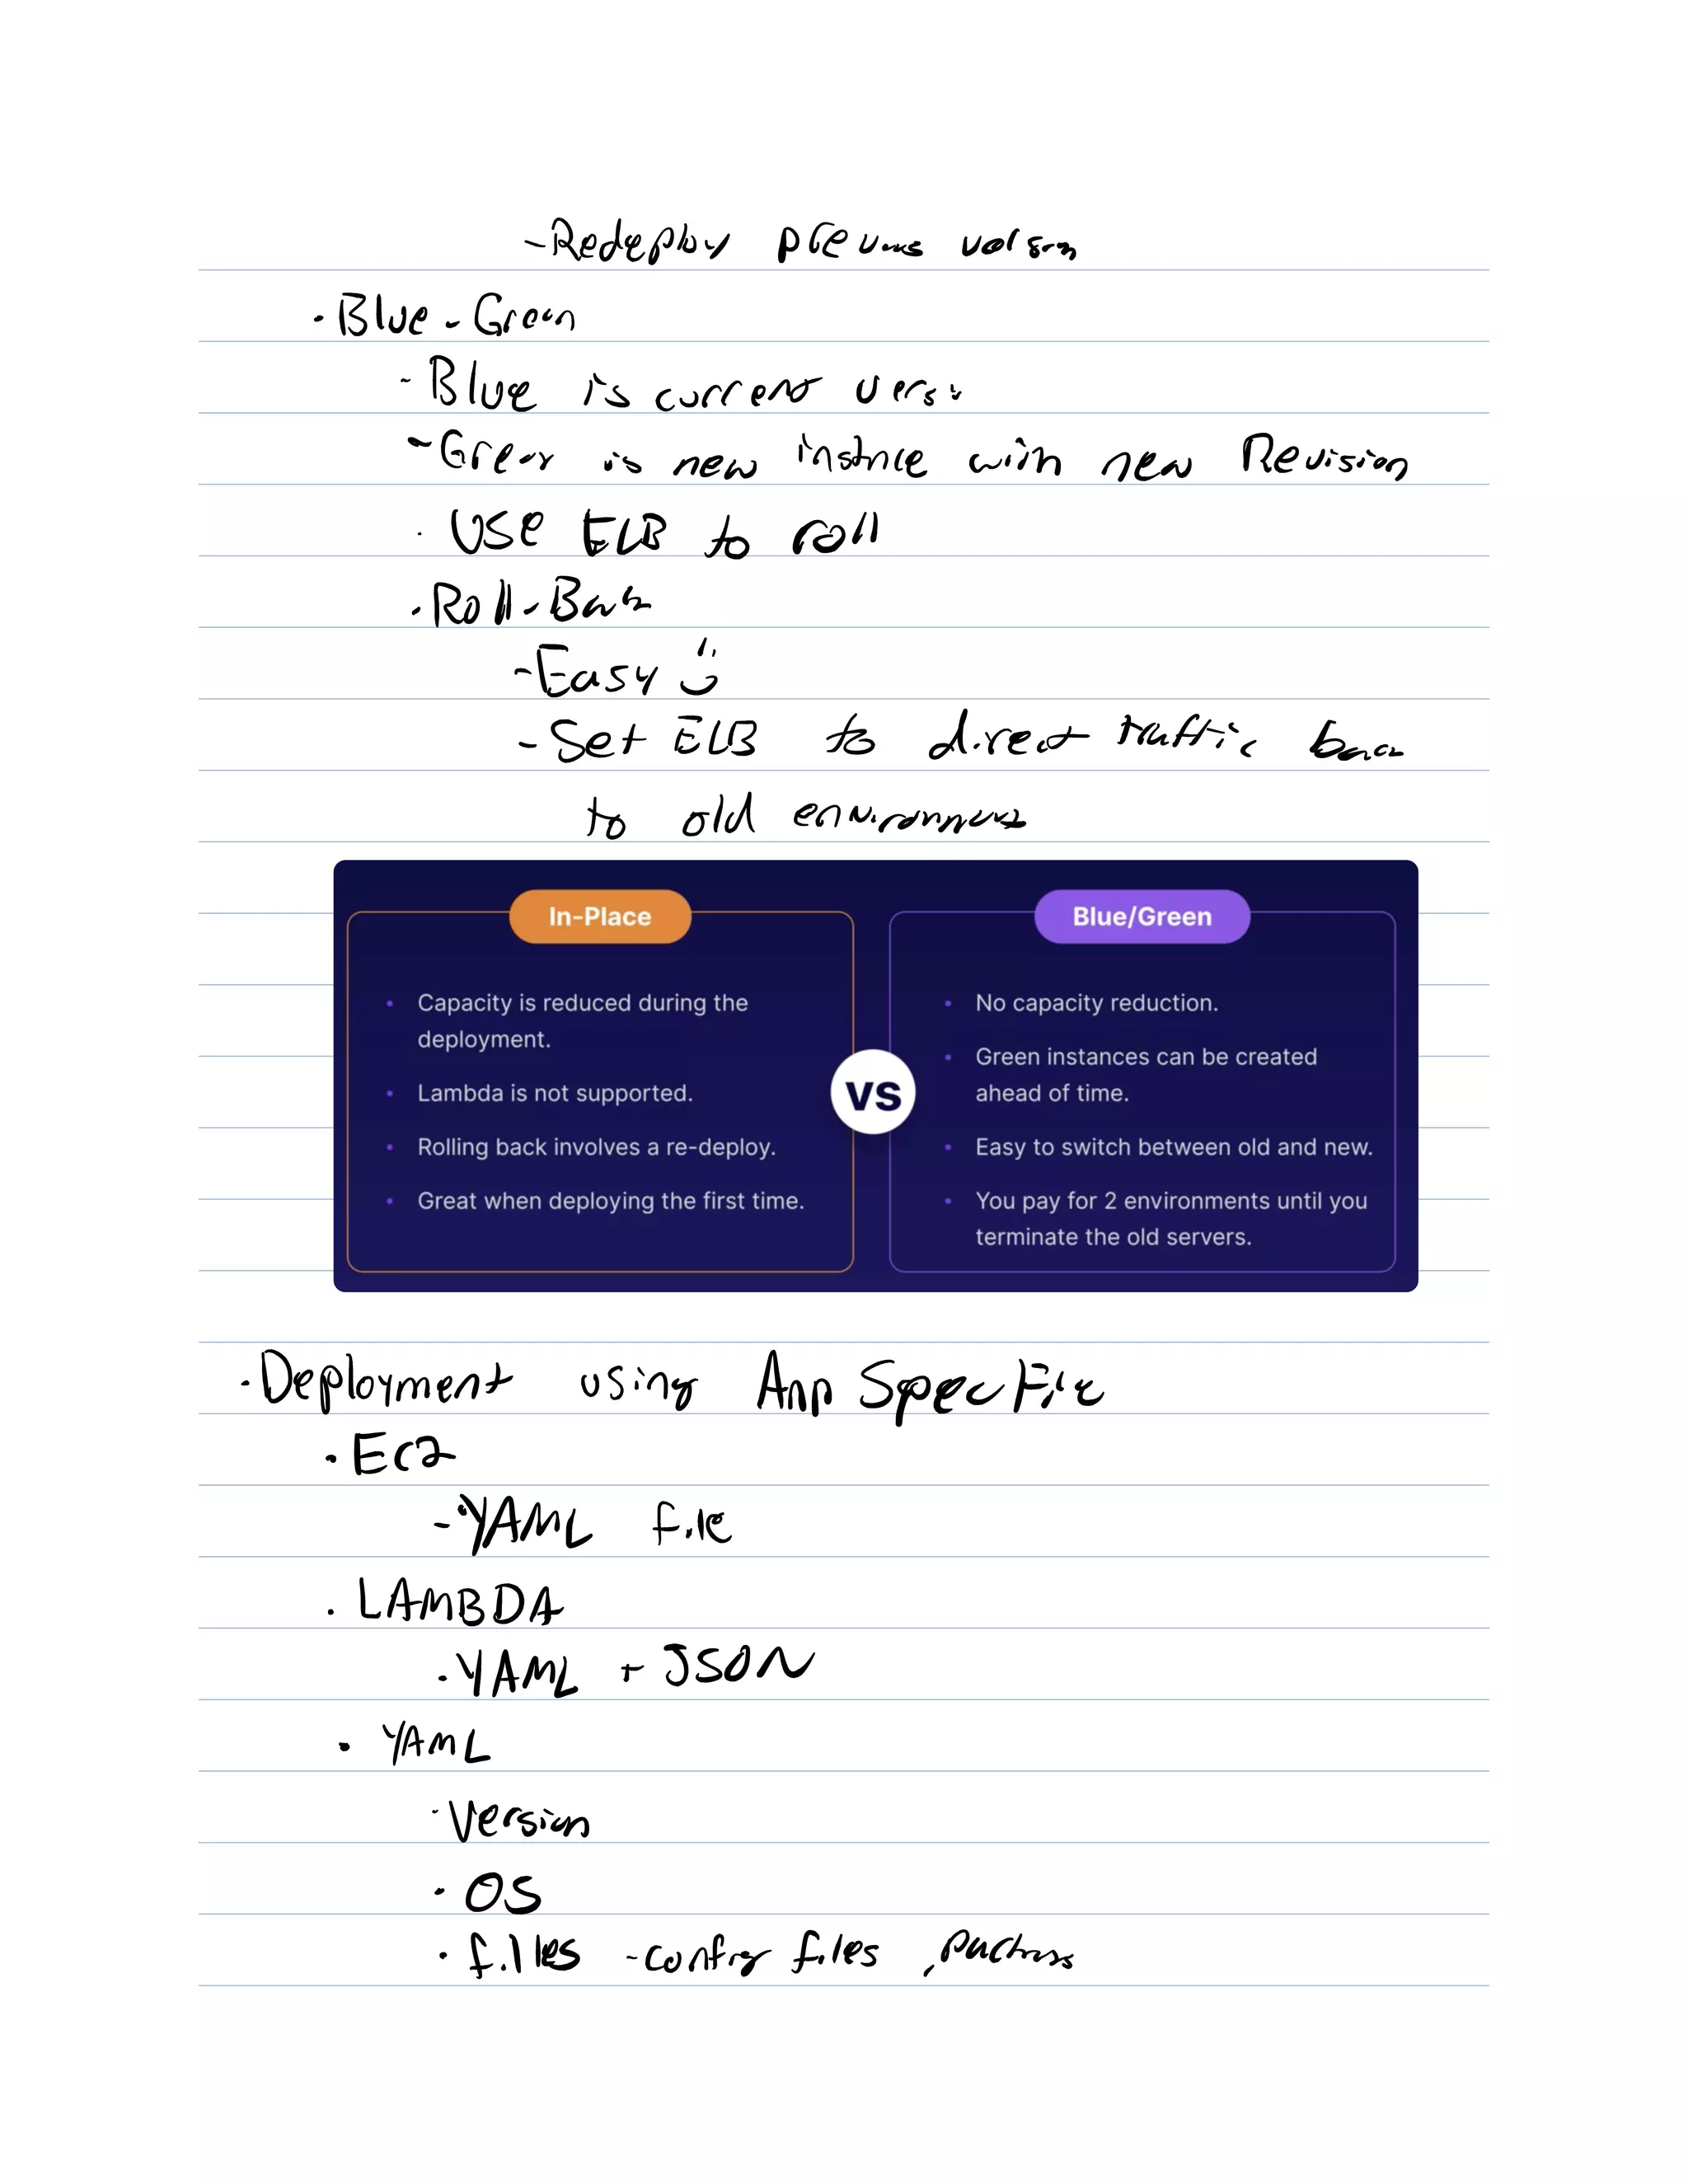 - Redeploy previous version
· Blue - Green
- Blue is current vers.
- Green is new instnce with new Revision
· Use ELB to roll
· Roll-Back
- Easy :)
- Set ELB to direct traffic back
to old environment
In-Place
Blue/Green
• Capacity is reduced during the
deployment.
• Lambda is not supported.
• Rolling back involves a re-deploy.
• Great when deploying the first time.
VS
• No capacity reduction.
• Green instances can be created
ahead of time.
• Easy to switch between old and new.
• You pay for 2 environments until you
terminate the old servers.
· Deployment using App Spec File
· EC2
- YAML file
· LAMBDA
· YAML + JSON
· YAML
· Version
· OS
· files - config files,